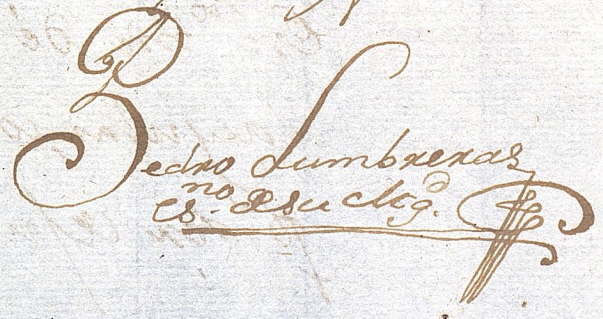 Pedro Lumbreras
es.no D su Mg.d